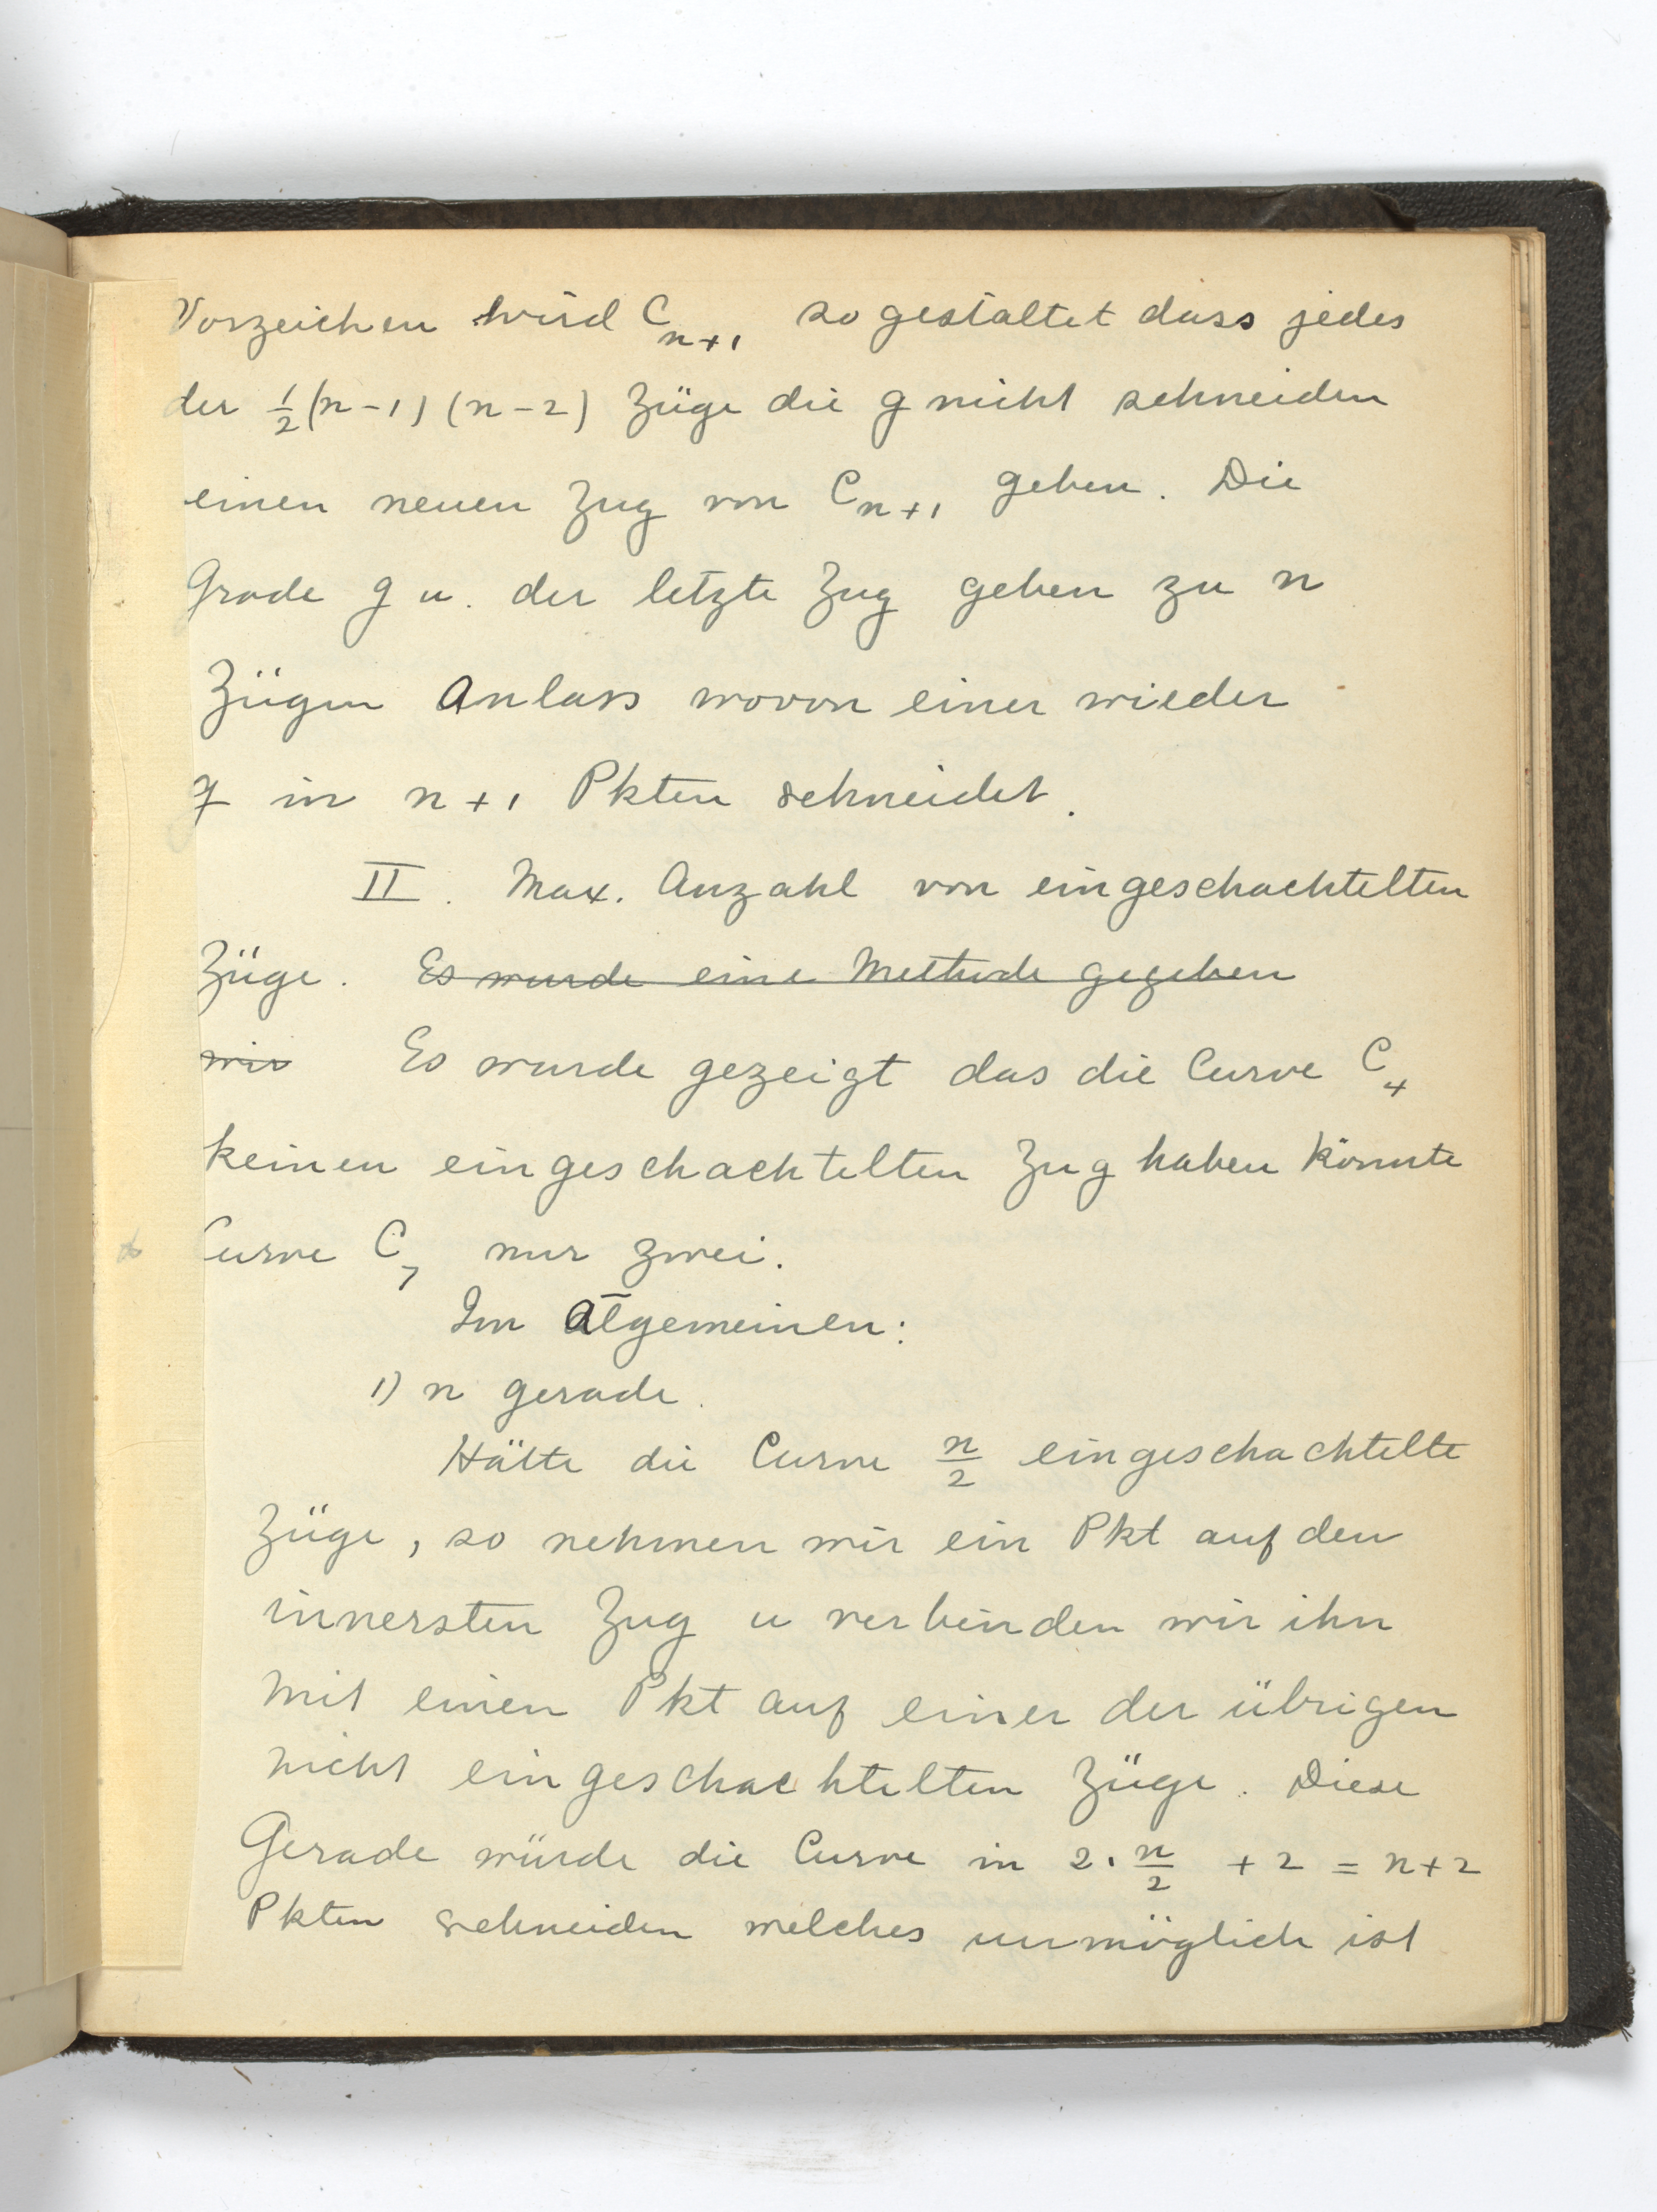 Vorzeichen wird C_{n+1} so gestaltet dass jedes
der 1/2 (n-1) (n-2) Züge die g nicht schneiden
einen neuen Zug von C_{n+1} geben. Die
Grade g u. der letzte Zug geben zu n
Zügen Anlass wovon einer wieder
g in n+1 Pkten schneidet.
II. Max. Anzahl von eingeschachtelten
Züge. Es wurde eine Methode gegeben
wir Es wurde gezeigt das die Curve C_4
keinen eingeschachtelten Zug haben könnte
Curve C_7 nur zwei.
Im Al̄gemeinen:
1) n gerade.
Hätte die Curve n/2 eingeschachtelte
Züge, so nehmen wir ein Pkt auf den
innersten Zug u verbinden wir ihn
mit einen Pkt auf einer der übrigen
nicht eingeschachtelten Züge. Diese
Gerade würde die Curve in 2. n/2 + 2 = n+2
Pkten schneiden welches unmöglich ist